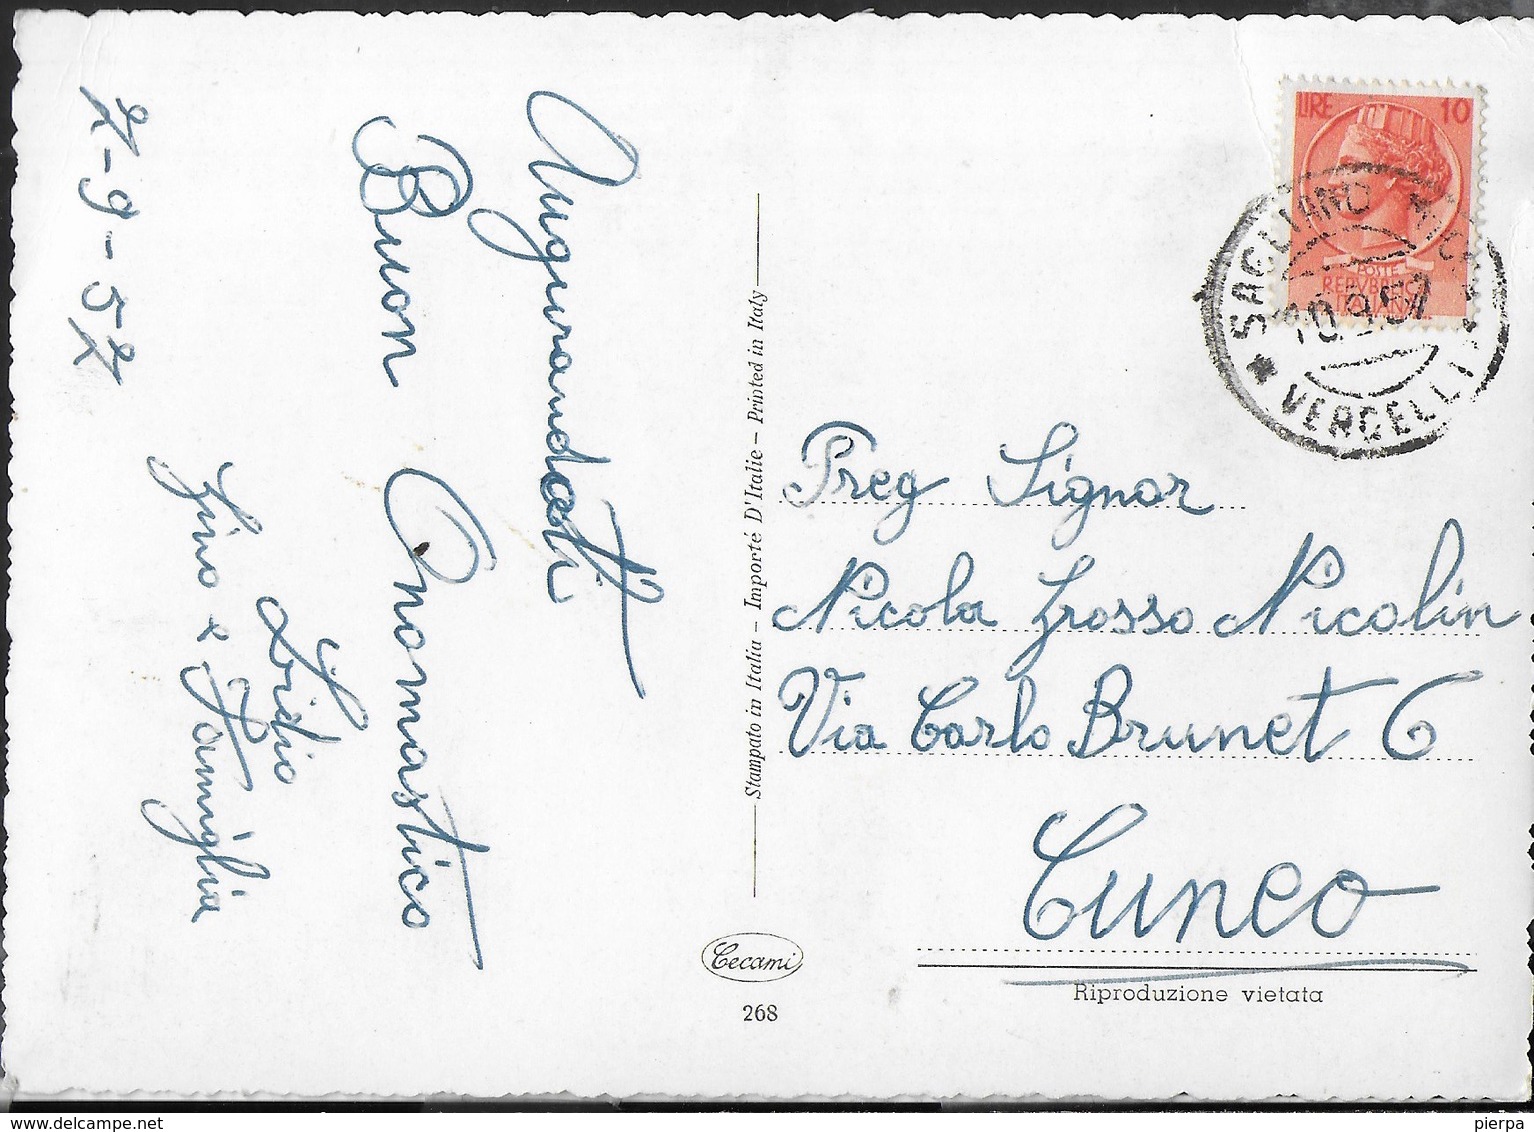 7-9-57
Augurandoti
Buon Onomastico
Lidio
Zino e Famiglia
Stampato in Italia – Importé D'Italie – Printed in Italy
Cecami
268
LIRE 10
POSTE
REPVBBLICA
ITALIANA
SAGLIANO MICCA
10.9.57
* VERCELLI *
Preg Signor
Nicola Grosso Nicolin
Via Carlo Brunet 6
Cuneo
Riproduzione vietata
pierpa